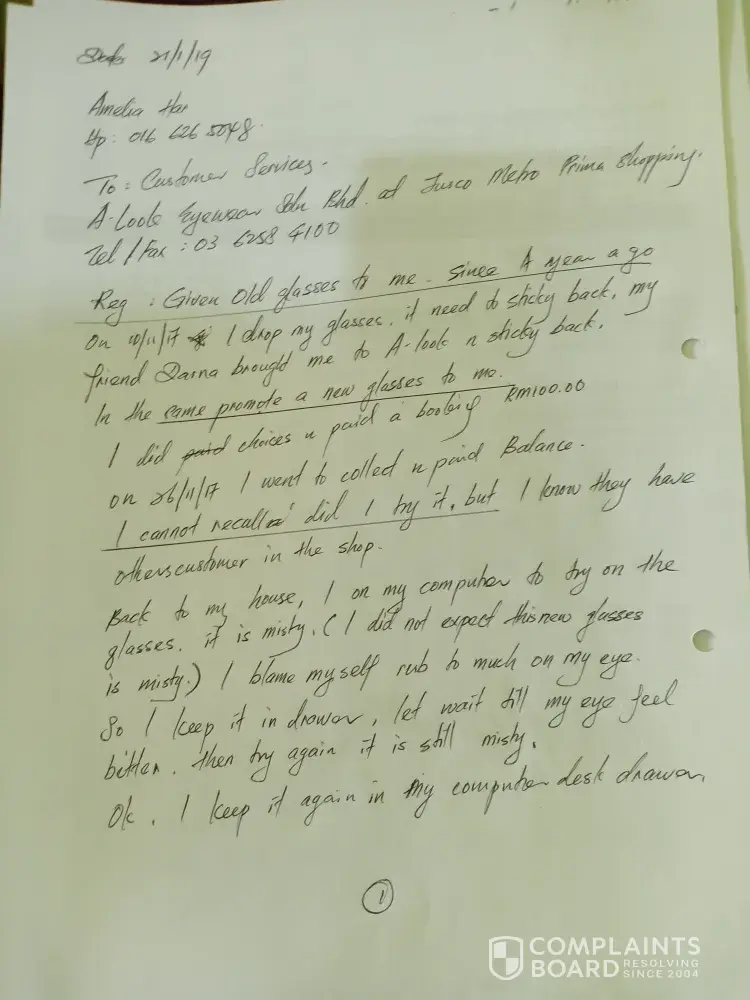 Date 21/1/19
Amelia Har
Hp: 016 626 5048.
To: Customer Services.
A-Look Eyewear Sdn Bhd. at Jusco Metro Prima Shopping.
Tel / Fax : 03 6258 4100
Reg : Given Old glasses to me. Since A year a go
On 10/11/17 I drop my glasses. it need to sticky back, my
friend Darna brought me to A-look n sticky back.
In the same promote a new glasses to me.
I did paid choices n paid a booking RM100.00
on 26/11/17 I went to collect n paid Balance.
I cannot recall did I try it, but I know they have
others customer in the shop.
Back to my house, I on my computer to try on the
glasses. it is misty. (I did not expect this new glasses
is misty.) I blame myself rub to much on my eye.
So I keep it in drawer, let wait till my eye feel
bitter. then try again it is still misty.
Ok. I keep it again in my computer desk drawer.
1
COMPLAINTS
BOARD RESOLVING SINCE 2004